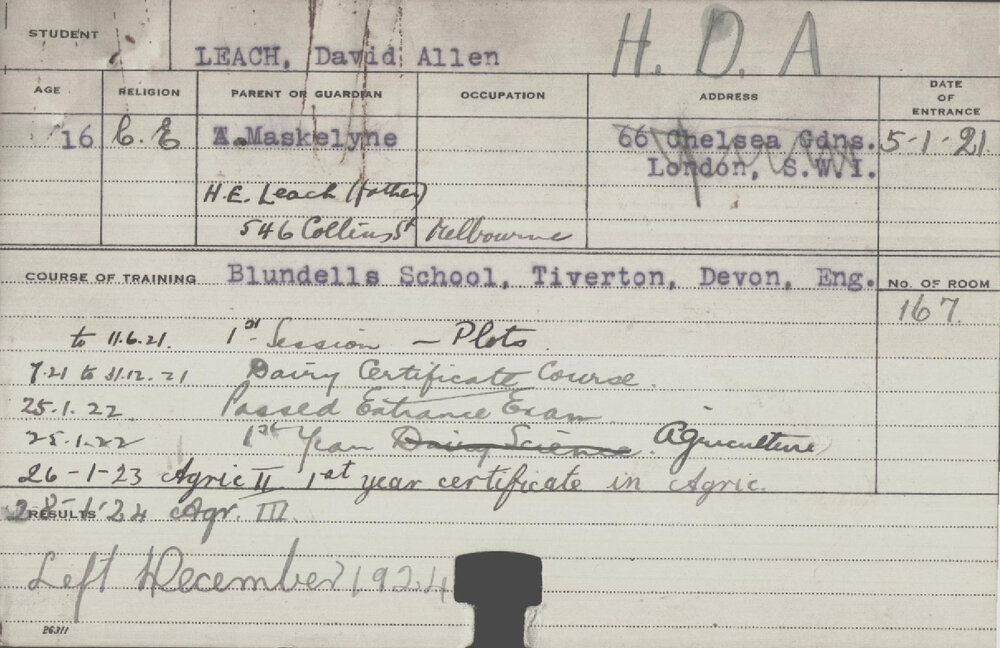 STUDENT LEACH, David Allen H. D. A
AGE RELIGION PARENT OR GUARDIAN OCCUPATION ADDRESS DATE OF ENTRANCE
16 C. E A. Maskelyne 66 Chelsea Gdns. 5-1-21
London, S.W.1.
H.E. Leach (father)
546 Collins St Melbourne
COURSE OF TRAINING Blundells School, Tiverton, Devon, Eng. No. OF ROOM
167
to 11.6.21. 1st Session - Plots
7.21 to 31.12.21 Dairy Certificate Course.
25.1.22 Passed Entrance Exam
25.1.22 1st Year Dairy Science. Agriculture
26-1-23 Agric II 1st year certificate in Agric.
RESULTS 28-1-24 Agr. III.
Left December 1924
26311